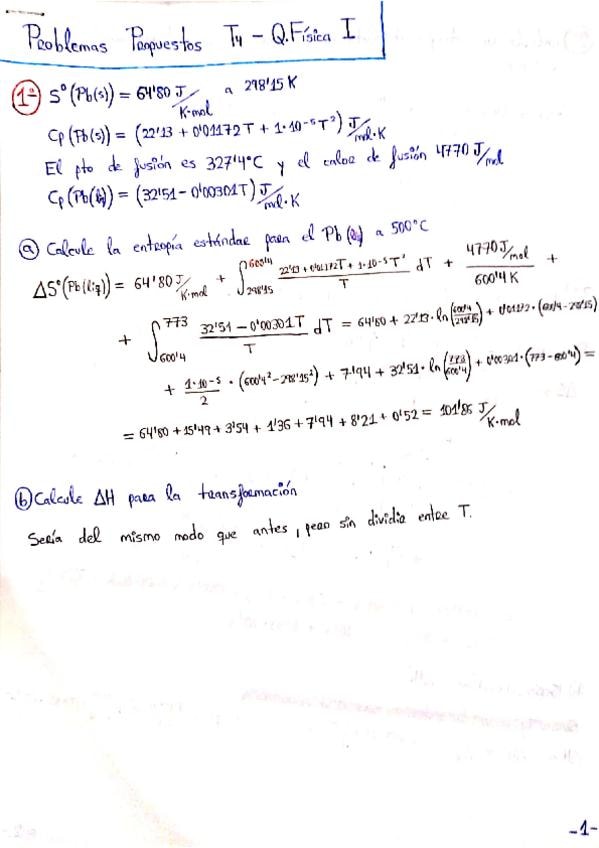 Problemas Propuestos T4 - Q.Física I
1º S°(Pb(s)) = 64'80 J/K·mol a 298'15 K
Cp(Pb(s)) = (22'13 + 0'01172T + 1·10⁻⁵T²) J/mol·K
El pto de fusión es 327'4°C y el calor de fusión 4770 J/mol
Cp(Pb(liq)) = (32'51 - 0'00301T) J/mol·K
a) Calcule la entropía estándar para el Pb (liq) a 500°C
ΔS°(Pb(líq)) = 64'80 J/K·mol + ∫_{298'15}^{600'4} (22'13 + 0'01172T + 1·10⁻⁵T²)/T dT + (4770 J/mol)/(600'4 K) +
+ ∫_{600'4}^{773} (32'51 - 0'00301T)/T dT = 64'80 + 22'13·ln(600'4/298'15) + 0'01172·(600'4-298'15)
+ (1·10⁻⁵)/2 · (600'4² - 298'15²) + 7'94 + 32'51·ln(773/600'4) + 0'00301·(773-600'4) =
= 64'80 + 15'49 + 3'54 + 1'36 + 7'94 + 8'21 + 0'52 = 101'86 J/K·mol
b) Calcule ΔH para la transformación
Sería del mismo modo que antes, pero sin dividir entre T.
-1-